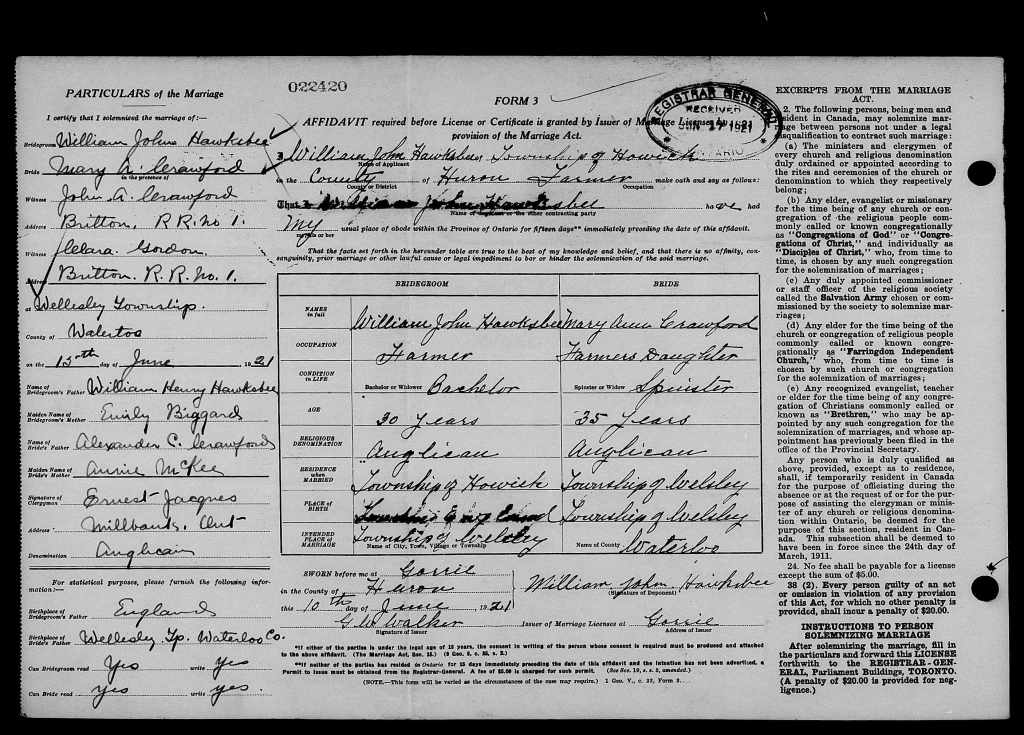 022420
PARTICULARS of the Marriage
I certify that I solemnized the marriage of:—
Bridegroom William John Hawksbee
Bride Mary A. Crawford
in the presence of
Witness John A. Crawford
Address Britton, R.R. No 1.
Witness Clara Gordon
Address Britton. R.R. No. 1.
at Wellesley Township.
County of Waterloo
on the 15th day of June 1921
Name of Bridegroom's Father William Henry Hawksbee
Maiden Name of Bridegroom's Mother Emily Biggard
Name of Bride's Father Alexander C. Crawford
Maiden Name of Bride's Mother Annie McKee
Signature of Clergyman Ernest Jacques
Address Millbank, Ont
Denomination Anglican
For statistical purposes, please furnish the following information:—
Birthplace of Bridegroom's Father England
Birthplace of Bride's Father Wellesley Tp. Waterloo Co.
Can Bridegroom read Yes write Yes
Can Bride read yes write yes.
FORM 3
REGISTRAR GENERAL
RECEIVED
JUN 27 1921
ONTARIO
AFFIDAVIT required before License or Certificate is granted by Issuer of Marriage Licenses
provision of the Marriage Act.
I William John Hawksbee, Township of Howick
Name of Applicant
in the County of Huron Farmer make oath and say as follows:
County or District Occupation
That William John Hawksbee have had
Name of Applicant or the other contracting party
My usual place of abode within the Province of Ontario for fifteen days** immediately preceding the date of this affidavit.
my his or her
That the facts set forth in the hereunder table are true to the best of my knowledge and belief, and that there is no affinity, consanguinity, prior marriage or other lawful cause or legal impediment to bar or hinder the solemnization of the said marriage.
BRIDEGROOM BRIDE
NAMES in full William John Hawksbee Mary Ann Crawford
OCCUPATION Farmer Farmers Daughter
CONDITION in LIFE Bachelor or Widower Bachelor Spinster or Widow Spinster
AGE 30 years 35 years
RELIGIOUS DENOMINATION Anglican Anglican
RESIDENCE when MARRIED Township of Howick Township of Welsley
PLACE OF BIRTH Township of Welsley
INTENDED PLACE OF MARRIAGE Township of Welsley Waterloo
Name of City, Town, Village or Township Name of County
SWORN before me at Gorrie
in the County of Huron
this 10th day of June 1921
William John Hawksbee
(Signature of Deponent)
G.W. Walker Issuer of Marriage Licenses at Gorrie
Signature of Issuer Address of Issuer
*If either of the parties is under the legal age of 18 years, the consent in writing of the person whose consent is required must be produced and attached
to the above affidavit. (The Marriage Act, Sec. 15.)
**If neither of the parties has resided in Ontario for 15 days immediately preceding the date of this affidavit and the intention has not been advertised, a
Permit to Issue must be obtained from the Registrar-General. A fee of $5.00 is charged for such permit.
(NOTE.—This form will be varied as the circumstances of the case may require.)
EXCERPTS FROM THE MARRIAGE
ACT.
2. The following persons, being men and
resident in Canada, may solemnize marriage
between persons not under a legal
disqualification to contract such marriage:
(a) The ministers and clergymen of
every church and religious denomination
duly ordained or appointed according to
the rites and ceremonies of the church or
denomination to which they respectively
belong;
(b) Any elder, evangelist or missionary
for the time being of any church or congregation
of the religious people commonly
called or known congregationally
as "Congregations of God" or "Congregations
of Christ," and individually as
"Disciples of Christ," who, from time to
time, is chosen by any such congregation
for the solemnization of marriages;
(c) Any duly appointed commissioner
or staff officer of the religious society
called the Salvation Army chosen or commissioned
by the society to solemnize marriages;
(d) Any elder for the time being of the
church or congregation of religious people
commonly called or known congregationally
as "Farringdon Independent
Church," who, from time to time is
chosen by such church or congregation
for the solemnization of marriages;
(e) Any recognized evangelist, teacher
or elder for the time being of any congregation
of Christians commonly called or
known as "Brethren," who may be appointed
by any such congregation for the
solemnization of marriages, and whose appointment
has previously been filed in the
office of the Provincial Secretary.
Any person who is duly qualified as
above, provided, except as to residence,
shall, if temporarily resident in Canada
for the purpose of officiating during the
absence or at the request of or for the purpose
of assisting the clergyman or minister
of any church or religious denomination
within Ontario, be deemed for the
purpose of this section, resident in Canada.
This subsection shall be deemed to
have been in force since the 24th day of
March, 1911.
24. No fee shall be payable for a license
except the sum of $5.00.
38 (2). Every person guilty of an act
or omission in violation of any provision
of this Act, for which no other penalty is
provided, shall incur a penalty of $20.00.
INSTRUCTIONS TO PERSON
SOLEMNIZING MARRIAGE
After solemnizing the marriage, fill in
the particulars and forward this LICENSE
forthwith to the REGISTRAR-GENERAL,
Parliament Buildings, TORONTO.
(A penalty of $20.00 is provided for negligence.)